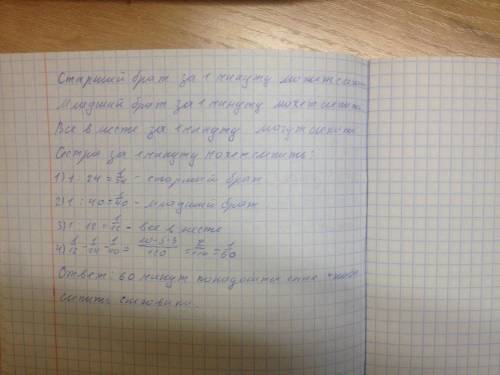 Старший брат за 1 минуту может слепить
Младший брат за 1 минуту может слепить
Все в месте за 1 минуту могут слепить
Сестра за 1 минуту может слепить:
1) 1 : 24 = 1/24 - старший брат
2) 1 : 40 = 1/40 - младший брат
3) 1 : 12 = 1/12 - все в месте
4) 1/12 - 1/24 - 1/40 = (10-5-3)/120 = 2/120 = 1/60
Ответ: 60 минут понадобиться
слепить снеговика.